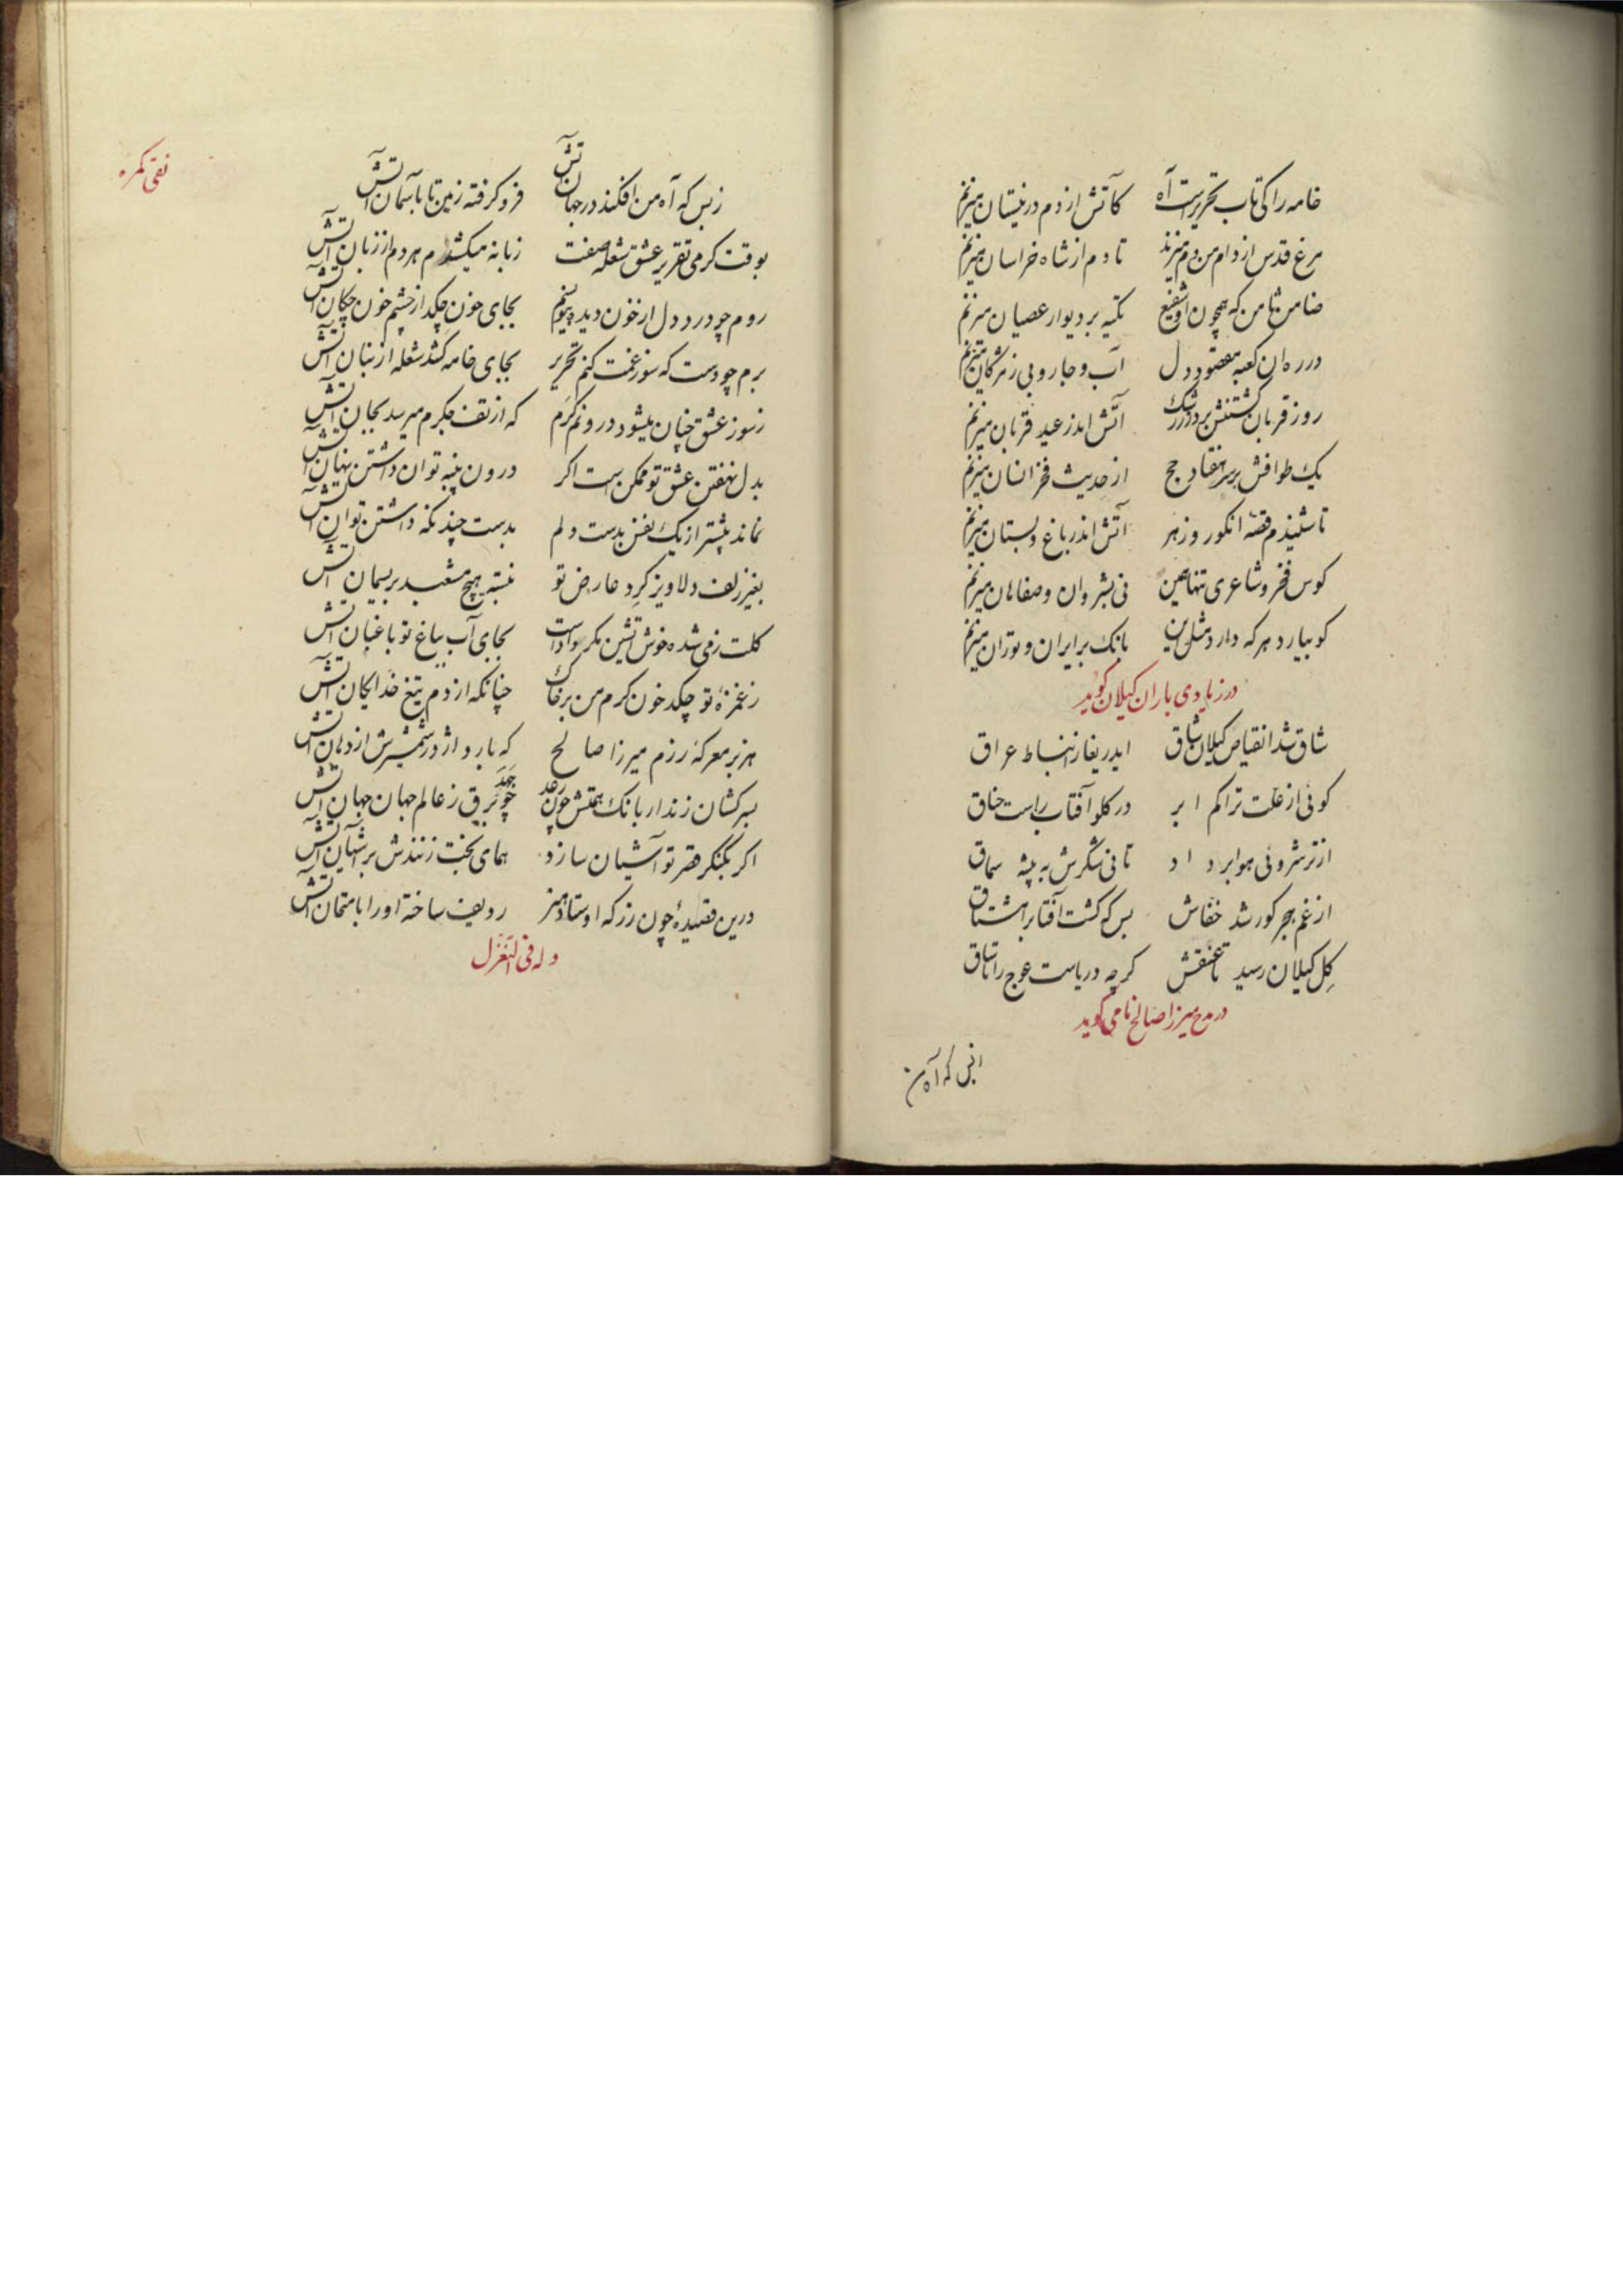 خامه را کی تاب تحریرست آه کآتش از دم در نیستان میزنم
مرغ قدس از دام من دم میزند تا دم از شاه خراسان میزنم
ضامن ثامن که همچون او شفیع تکیه بر دیوار عصیان میزنم
در ره آن کعبه مقصود دل آب و جاروبی ز مژگان میزنم
روز قربان گشتنش بر در ز شک آتش اندر عید قربان میزنم
یک طوافش بر سر هفتاد حج از حدیث فخر انسان میزنم
تا شنیدم قصه انکور و زهر آتش اندر باغ و بستان میزنم
کوس فخر و شاعری تنها همین نی بشروان و صفاهان میزنم
کو بیارد هر که دارد مثل این بانک بر ایران و توران میزنم
در زیادی باران کیلان کوید
شاق شد انقباض کیلان شاق ایدریغا ز انبساط عراق
کوئی از علت تراکم ابر در کلو آفتاب راست خناق
از ترشروئی هوا بر داد تا نی شکرش به پیشه سماق
از غم هجر کور شد خفاش بس که کشت آفتاب را مشتاق
کِل کیلان رسید تا عنقش کرچه دریاست عوج را تا ساق
در مدح میرزا صالح نامی کوید
زبس که آه من
نقی کمره
زبس که آه من افکند در جهان آتش فرو کرفته زمین تا بآسمان آتش
بوقت کرمی تقریر عشق شعله صفت زبانه میکشدم هر دم از زبان آتش
روم چو در درد دل از خون دیده بجای خون چکد از چشم خون چکان آتش
برم چو دست که سوز غمت کنم تحریر بجای خامه کشد شعله از بنان آتش
ز سوز عشق چنان میشود درونم کرم که از تف جکرم میرسد بجان آتش
بدل نهفتن عشق تو ممکن است اکر درون پنبه توان داشتن نهان آتش
نماند بیشتر از یک نفس بدست دلم بدست چند نکه داشتن توان آتش
بغیر زلف دلاویز کرد عارض تو نبسته هیچ مشعبد بریسمان آتش
کلت ز می شده خوش آتشین مکر دادست بجای آب بباغ تو باغبان آتش
ز غمزهٔ تو چکد خون کرم من بر خاک چنانکه از دم تیغ خدایکان آتش
هزبر معرکهٔ رزم میرزا صالح که بارد اژدر شمشیرش از دهان آتش
بسرکشان زند ار بانک همتش چون رعد جهد چو برق ز عالم جهان جهان آتش
اکر بکنکر قصر تو آشیان سازد همای بخت زنندش بر آشیان آتش
درین قصیدهٔ چون زر که اوستاد هنر ردیف ساخته او را بامتحان آتش
وله فی التغزل